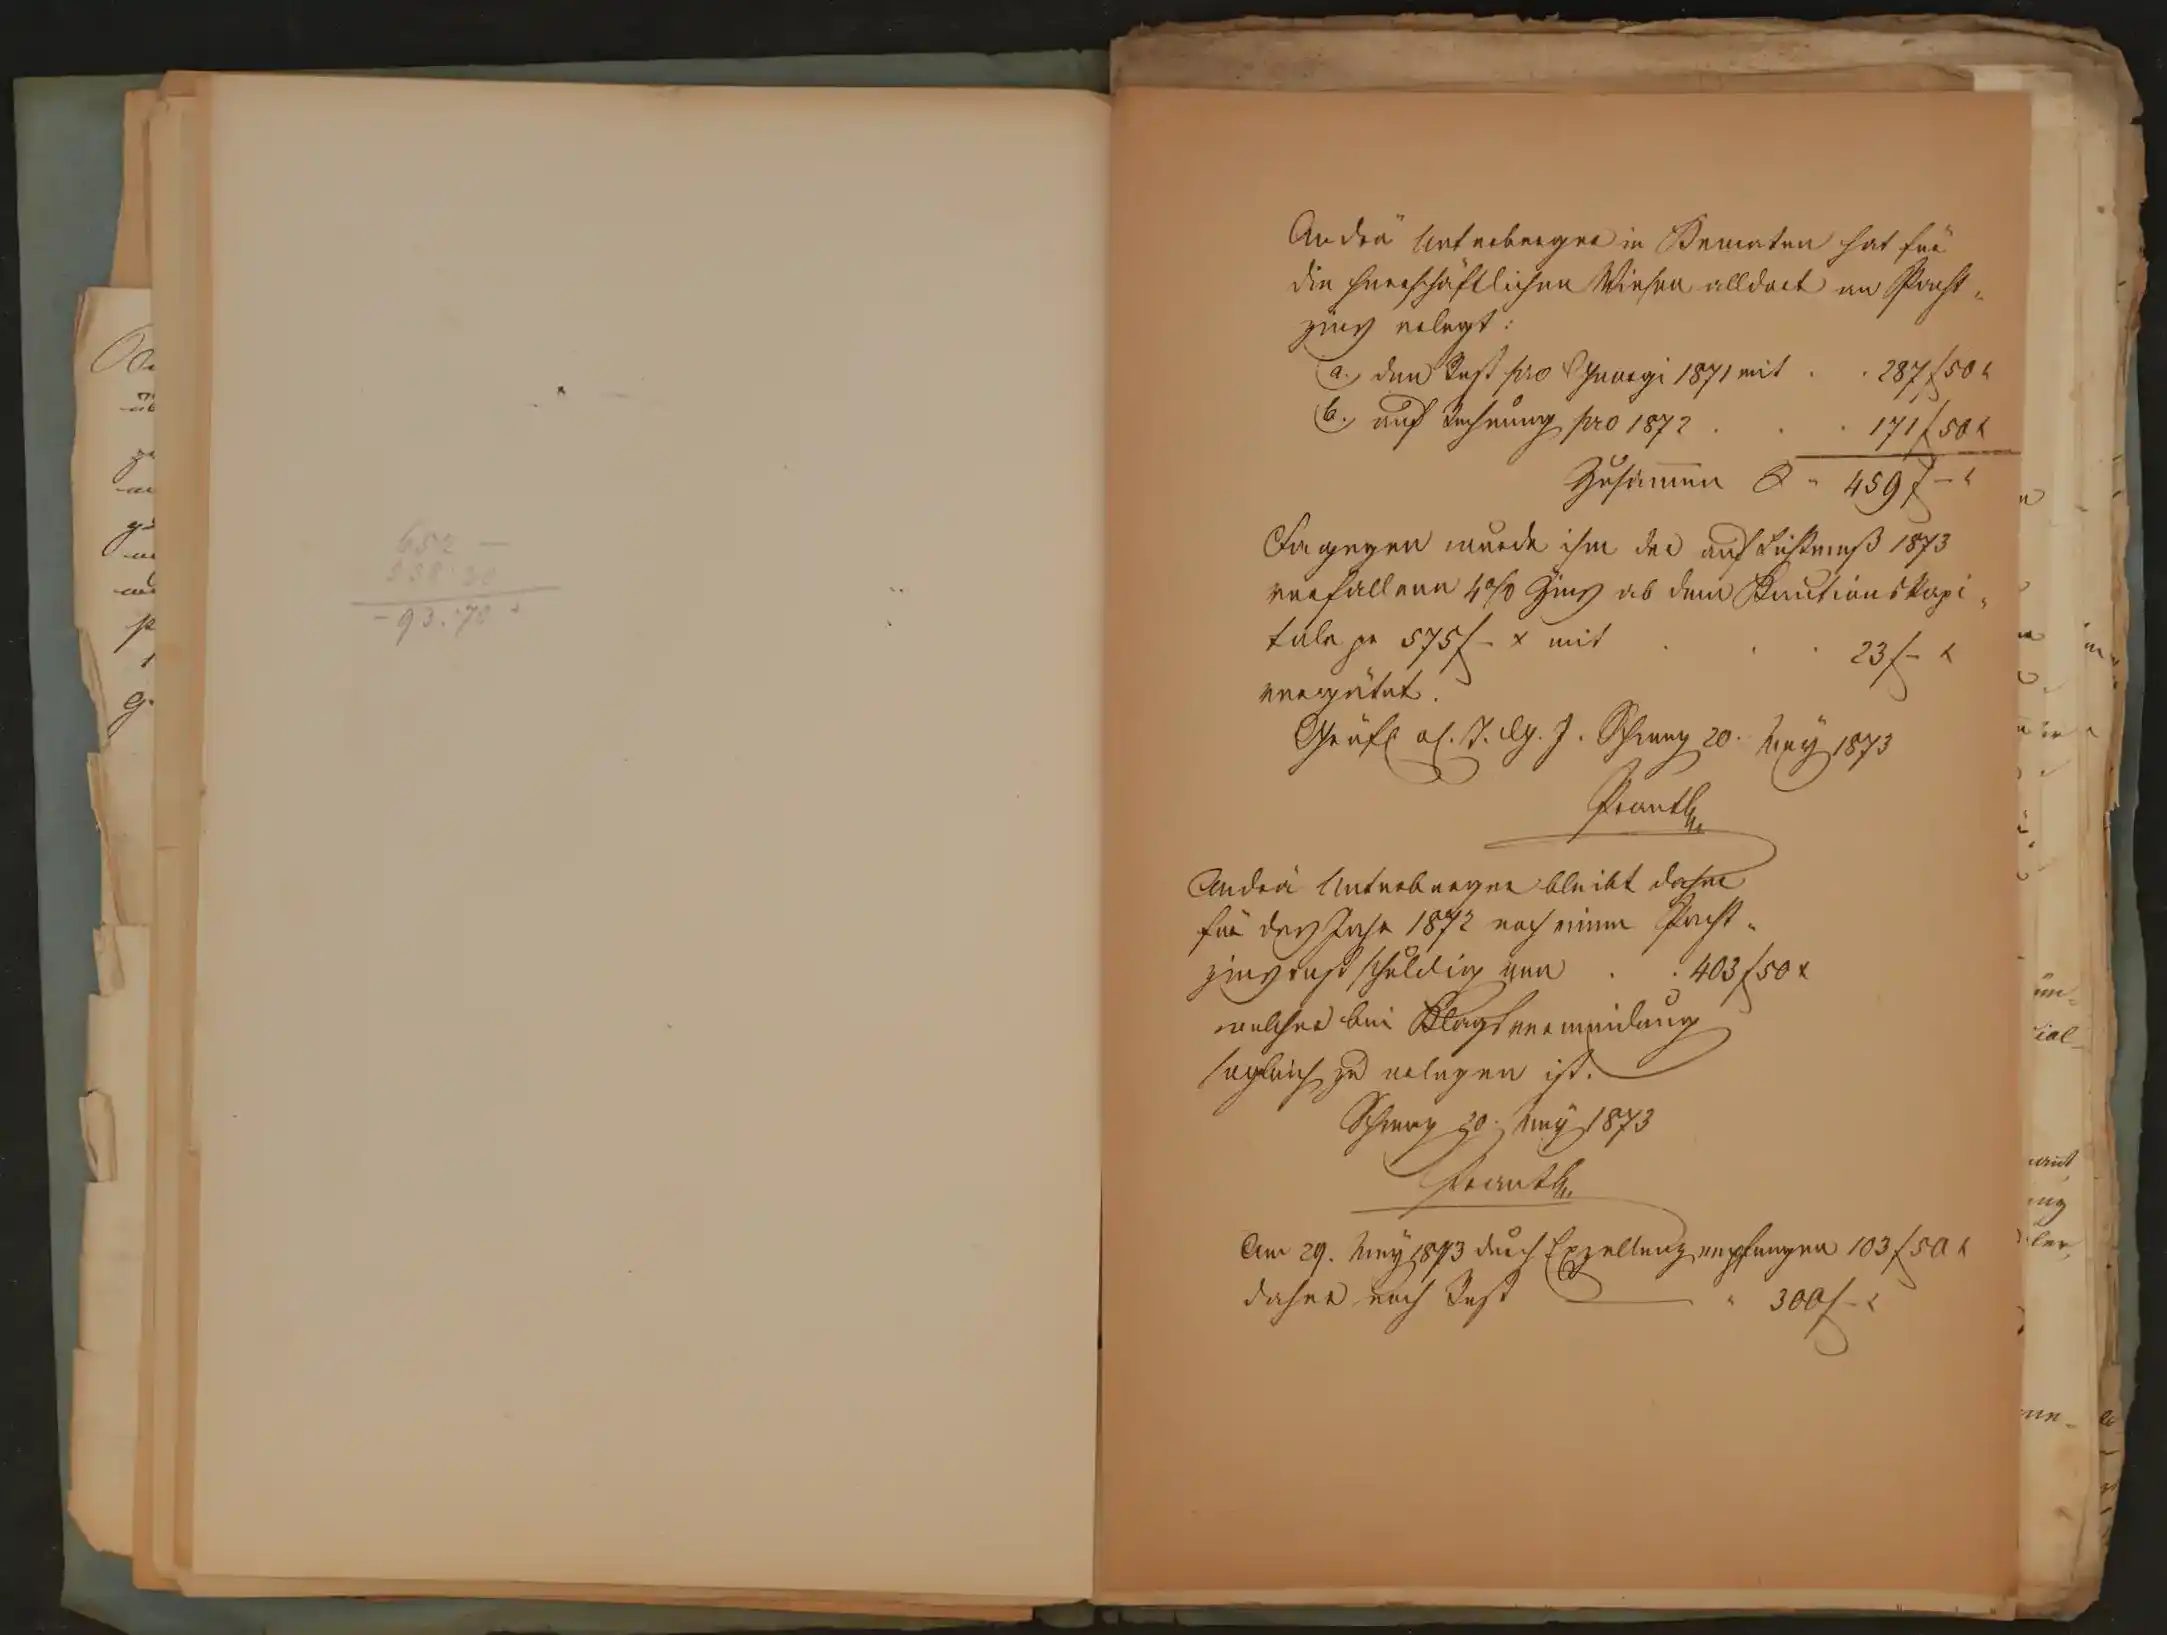 652 —
558 30
- 93.70
Andrä Unterberger in Kematen hat für
die herrschäftlichen Wiesen alldort an Pacht-
zins erlegt:
a. den Rest pro Georgi 1871 mit . . 287 f 50 x
b. auf Rechnung pro 1872 . . . 171 f 50 x
Zusammen 459 f – x
Dagegen wurde ihm der auf Lichtmeß 1873
verfallene 4% Zins ab dem Kautionskapi-
tale pr 575 f – x mit . . . 23 f – x
vergütet.
Gräfl. Schwaz 20. May 1873
Prantl
Andrä Unterberger bleibt daher
für das Jahr 1872 noch einen Pacht-
zinsrest schuldig von . . 403 f 50 x
welcher bei Klagsvermeidung
sogleich zu erlegen ist.
Schwaz 20. May 1873
Prantl
Am 29. May 1873 durch Exzellenz empfangen 103 f 50 x
daher noch Rest " 300 f – x